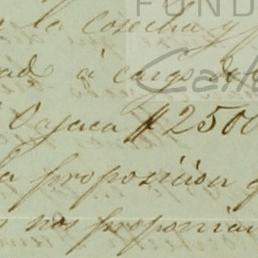 FUND
la cosecha y
ad á cargo de
Oajaca $2500
a proposicion q
s nos proponia